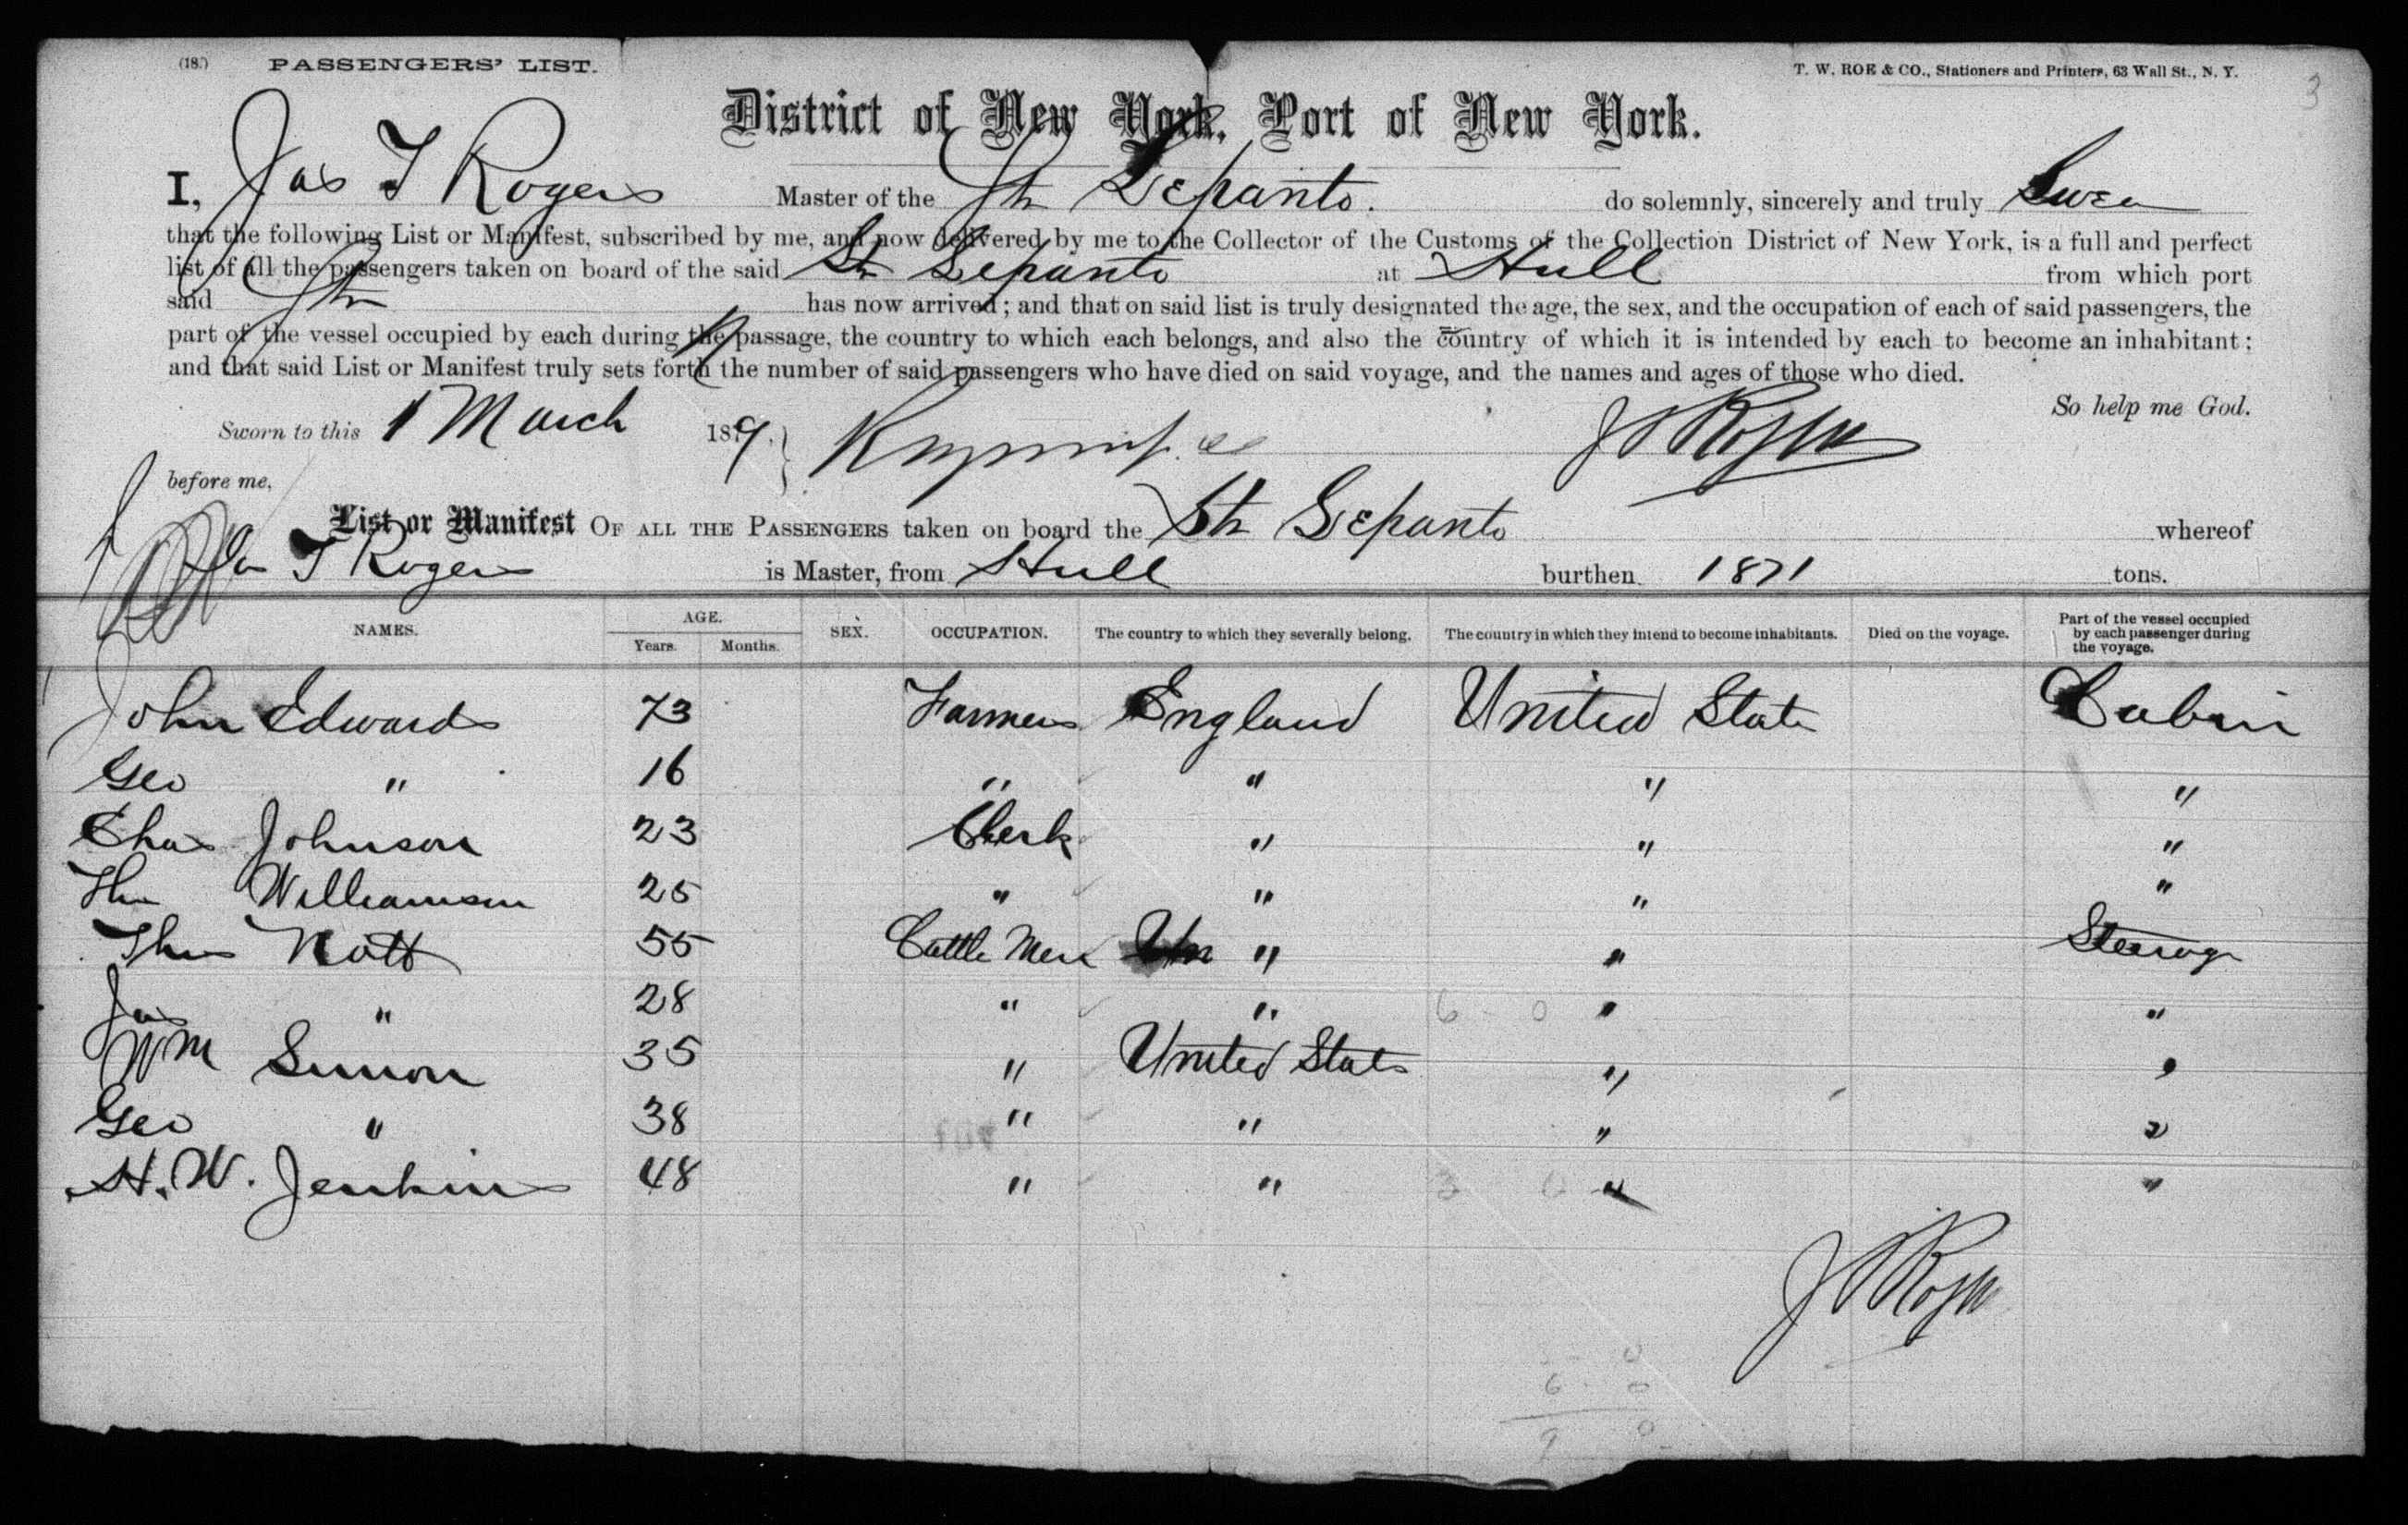 (18.) PASSENGERS' LIST. T. W. ROE & CO., Stationers and Printers, 63 Wall St., N. Y. 3
District of New York, Port of New York.
I, Jas T Rogers Master of the Str Lepanto. do solemnly, sincerely and truly Swear
that the following List or Manifest, subscribed by me, and now delivered by me to the Collector of the Customs of the Collection District of New York, is a full and perfect
list of all the passengers taken on board of the said Str Lepanto at Hull from which port
said Str has now arrived; and that on said list is truly designated the age, the sex, and the occupation of each of said passengers, the
part of the vessel occupied by each during the passage, the country to which each belongs, and also the country of which it is intended by each to become an inhabitant;
and that said List or Manifest truly sets forth the number of said passengers who have died on said voyage, and the names and ages of those who died.
So help me God.
Sworn to this 1 March 1879. J T Rogers
before me,
List or Manifest OF ALL THE PASSENGERS taken on board the Str Lepanto whereof
Jas T Rogers is Master, from Hull burthen 1871 tons.
NAMES. AGE. Years. Months. SEX. OCCUPATION. The country to which they severally belong. The country in which they intend to become inhabitants. Died on the voyage. Part of the vessel occupied by each passenger during the voyage.
John Edwards 73 Farmers England United State Cabin
Geo " 16 " " " "
Chas Johnson 23 Clerk " " "
Thos Williamson 25 " " " "
Thos Nott 55 Cattle Men Un " " Steerage
Jas " 28 " " 6 0 " "
Wm Simon 35 " United States " "
Geo " 38 " " " "
H. W. Jenkins 48 " " 3 0 " "
J T Rogers
3 0
6 0
9 0